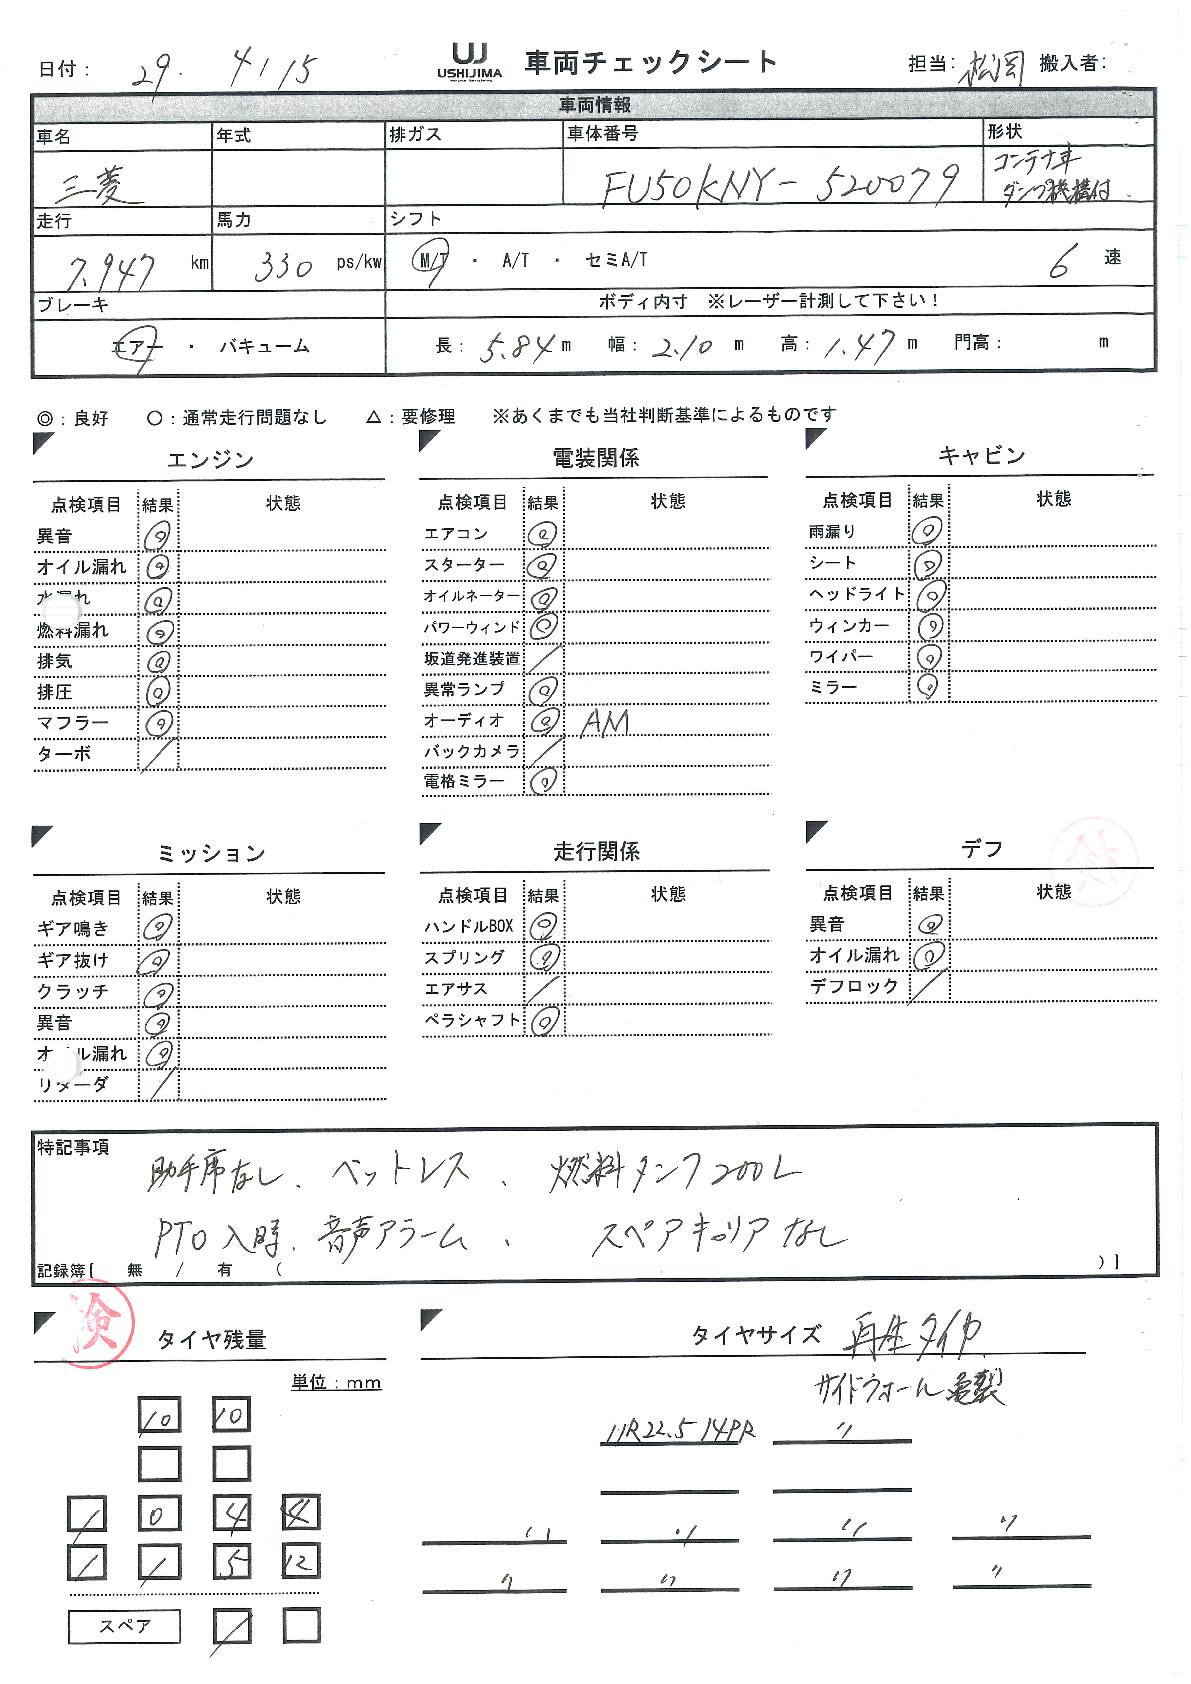 日付： 29. 4 / 15
USHIJIMA 車両チェックシート 担当： 松岡 搬入者：
車両情報
車名 年式 排ガス 車体番号 形状
三菱 FU50KNY-520079 コンテナ車
ダンプ機構付
走行 馬力 シフト
7.947 km 330 ps/kw M/T ・ A/T ・ セミA/T 6 速
ブレーキ ボディ内寸 ※レーザー計測して下さい！
エアー ・ バキューム 長： 5.84 m 幅： 2.10 m 高： 1.47 m 門高： m
◎：良好 ○：通常走行問題なし △：要修理 ※あくまでも当社判断基準によるものです
エンジン
点検項目 結果 状態
異音 ◎
オイル漏れ ◎
水漏れ ◎
燃料漏れ ◎
排気 ◎
排圧 ◎
マフラー ◎
ターボ /
電装関係
点検項目 結果 状態
エアコン ◎
スターター ◎
オイルネーター ◎
パワーウィンド ◎
坂道発進装置 /
異常ランプ ◎
オーディオ ◎ AM
バックカメラ /
電格ミラー ◎
キャビン
点検項目 結果 状態
雨漏り ◎
シート ◎
ヘッドライト ◎
ウィンカー ◎
ワイパー ◎
ミラー ◎
ミッション
点検項目 結果 状態
ギア鳴き ◎
ギア抜け ◎
クラッチ ◎
異音 ◎
オイル漏れ ◎
リターダ /
走行関係
点検項目 結果 状態
ハンドルBOX ◎
スプリング ◎
エアサス /
ペラシャフト ◎
デフ
点検項目 結果 状態
異音 ◎
オイル漏れ ◎
デフロック /
特記事項
助手席なし、ベットレス、燃料タンク200L
PTO入時、音声アラーム、スペアキャリアなし
記録簿[ 無 / 有 ( )]
検
タイヤ残量
単位：mm
10 10
1 0 4 4
1 1 5 12
スペア /
タイヤサイズ 再生タイヤ
サイドウォール亀裂
11R22.5 14PR 〃
〃 〃 〃 〃
〃 〃 〃 〃